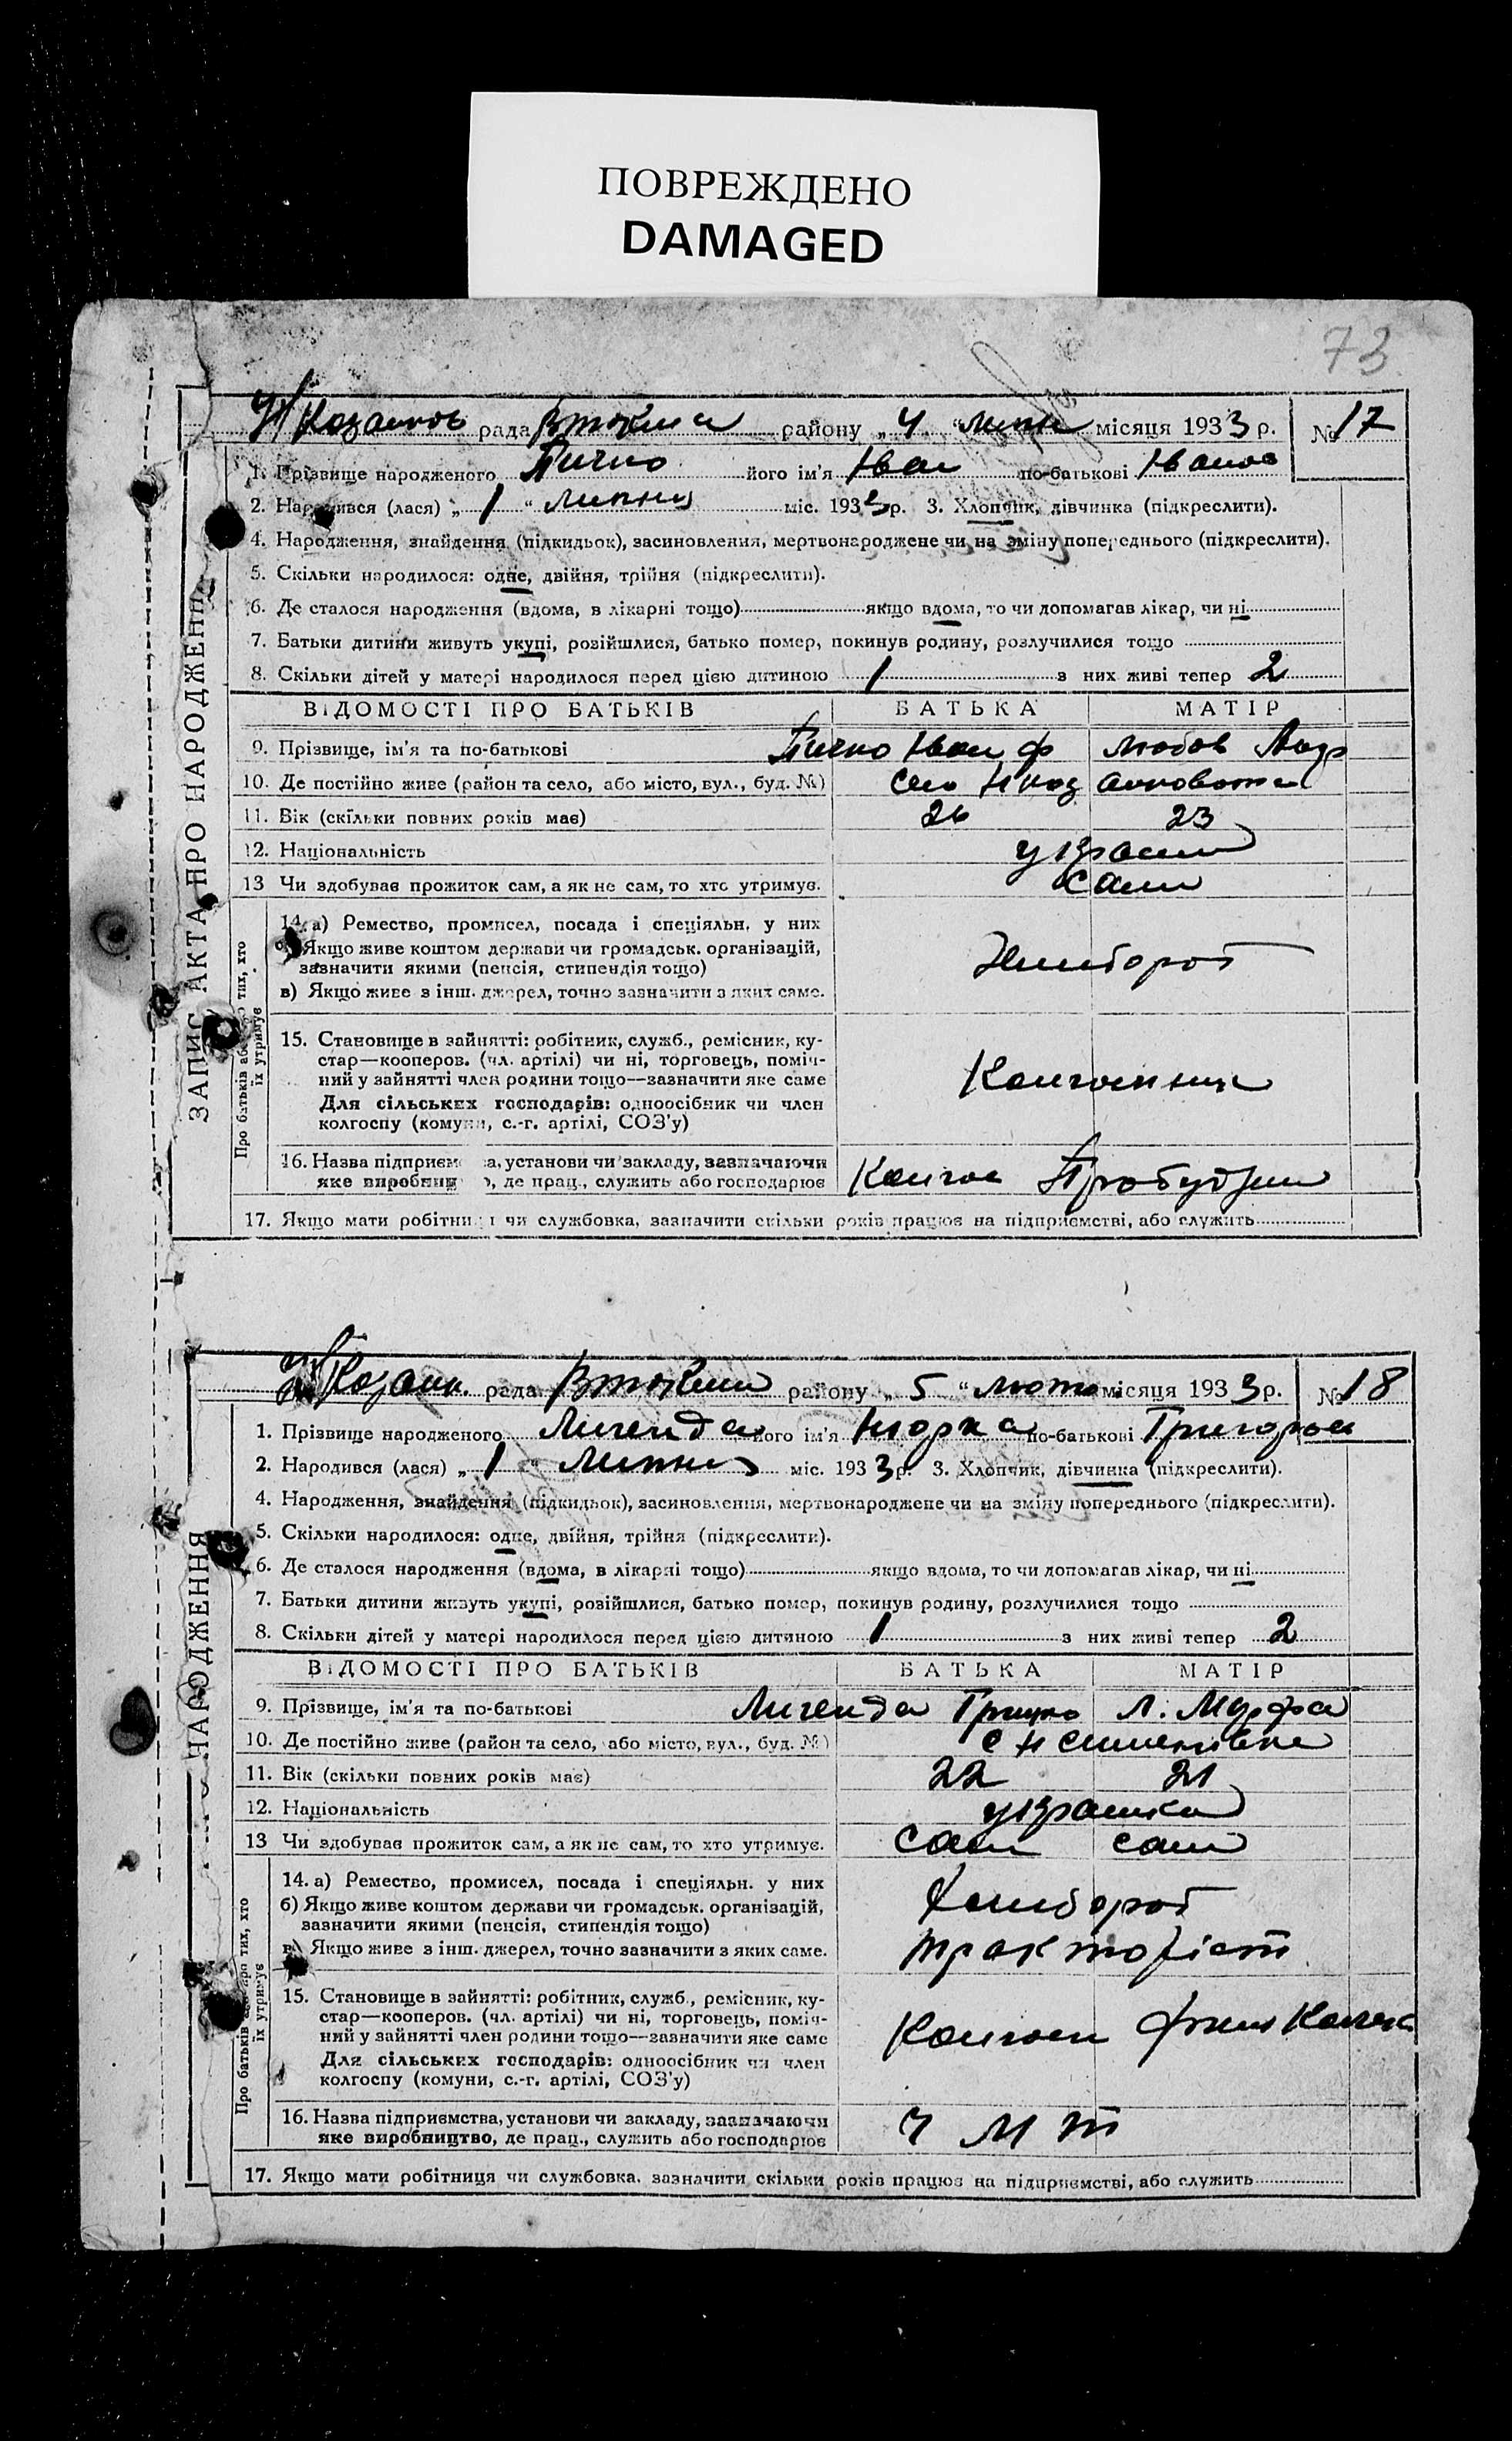 ПОВРЕЖДЕНО
DAMAGED
73
рада району „ 4 “ місяця 1933 р. № 17
1. Прізвище народженого Пичко його ім'я Иван по-батькові Иванов
2. Народився (лася) „ 1 “ Липня міс. 1933 р. 3. Хлопчик, дівчинка (підкреслити).
4. Народження, знайдення (підкидьок), засиновлення, мертвонароджене чи на зміну попереднього (підкреслити).
5. Скільки народилося: одне, двійня, трійня (підкреслити).
6. Де сталося народження (вдома, в лікарні тощо) якщо вдома, то чи допомагав лікар, чи ні
7. Батьки дитини живуть укупі, розійшлися, батько помер, покинув родину, розлучилися тощо
8. Скільки дітей у матері народилося перед цією дитиною 1 з них живі тепер 2
ВІДОМОСТІ ПРО БАТЬКІВ БАТЬКА МАТІР
9. Прізвище, ім'я та по-батькові Пичко Иван Ф Любов
10. Де постійно живе (район та село, або місто, вул., буд. №) село
11. Вік (скільки повних років має) 26 23
12. Національність
13 Чи здобуває прожиток сам, а як не сам, то хто утримує. сами
14. а) Ремество, промисел, посада і спеціяльн. у них
Якщо живе коштом держави чи громадськ. організацій,
зазначити якими (пенсія, стипендія тощо)
в) Якщо живе з інш. джерел, точно зазначити з яких саме.
15. Становище в зайнятті: робітник, служб., ремісник, ку-
стар—кооперов. (чл. артілі) чи ні, торговець, поміч-
ний у зайнятті член родини тощо—зазначити яке саме
Для сільських господарів: одноосібник чи член
колгоспу (комуни, с.-г. артілі, СОЗ'у)
16. Назва підприємства, установи чи закладу, зазначаючи
яке виробниц, де прац., служить або господарює
17. Якщо мати робітниця чи службовка, зазначити скільки років працює на підприємстві, або служить
ЗАПИС АКТА ПРО НАРОДЖЕННЯ
Про батьків або про тих, хто
їх утримує
рада району „ 5 “ місяця 1933 р. № 18
1. Прізвище народженого Лигенда його ім'я по-батькові Григорьев
2. Народився (лася) „ 1 “ Липня міс. 1933 р. 3. Хлопчик, дівчинка (підкреслити).
4. Народження, знайдення (підкидьок), засиновлення, мертвонароджене чи на зміну попереднього (підкреслити).
5. Скільки народилося: одне, двійня, трійня (підкреслити).
6. Де сталося народження (вдома, в лікарні тощо) якщо вдома, то чи допомагав лікар, чи ні
7. Батьки дитини живуть укупі, розійшлися, батько помер, покинув родину, розлучилися тощо
8. Скільки дітей у матері народилося перед цією дитиною 1 з них живі тепер 2
ВІДОМОСТІ ПРО БАТЬКІВ БАТЬКА МАТІР
9. Прізвище, ім'я та по-батькові Лигенда Гришко Л.
10. Де постійно живе (район та село, або місто, вул., буд. №)
11. Вік (скільки повних років має) 22 21
12. Національність
13 Чи здобуває прожиток сам, а як не сам, то хто утримує. сам сам
14. а) Ремество, промисел, посада і спеціяльн. у них
б) Якщо живе коштом держави чи громадськ. організацій,
зазначити якими (пенсія, стипендія тощо)
в) Якщо живе з інш. джерел, точно зазначити з яких саме. тракторіст
15. Становище в зайнятті: робітник, служб., ремісник, ку-
стар—кооперов. (чл. артілі) чи ні, торговець, поміч-
ний у зайнятті член родини тощо—зазначити яке саме
Для сільських господарів: одноосібник чи член
колгоспу (комуни, с.-г. артілі, СОЗ'у)
16. Назва підприємства, установи чи закладу, зазначаючи
яке виробництво, де прац., служить або господарює
17. Якщо мати робітниця чи службовка, зазначити скільки років працює на підприємстві, або служить
НАРОДЖЕННЯ
Про батьків або про тих, хто
їх утримує